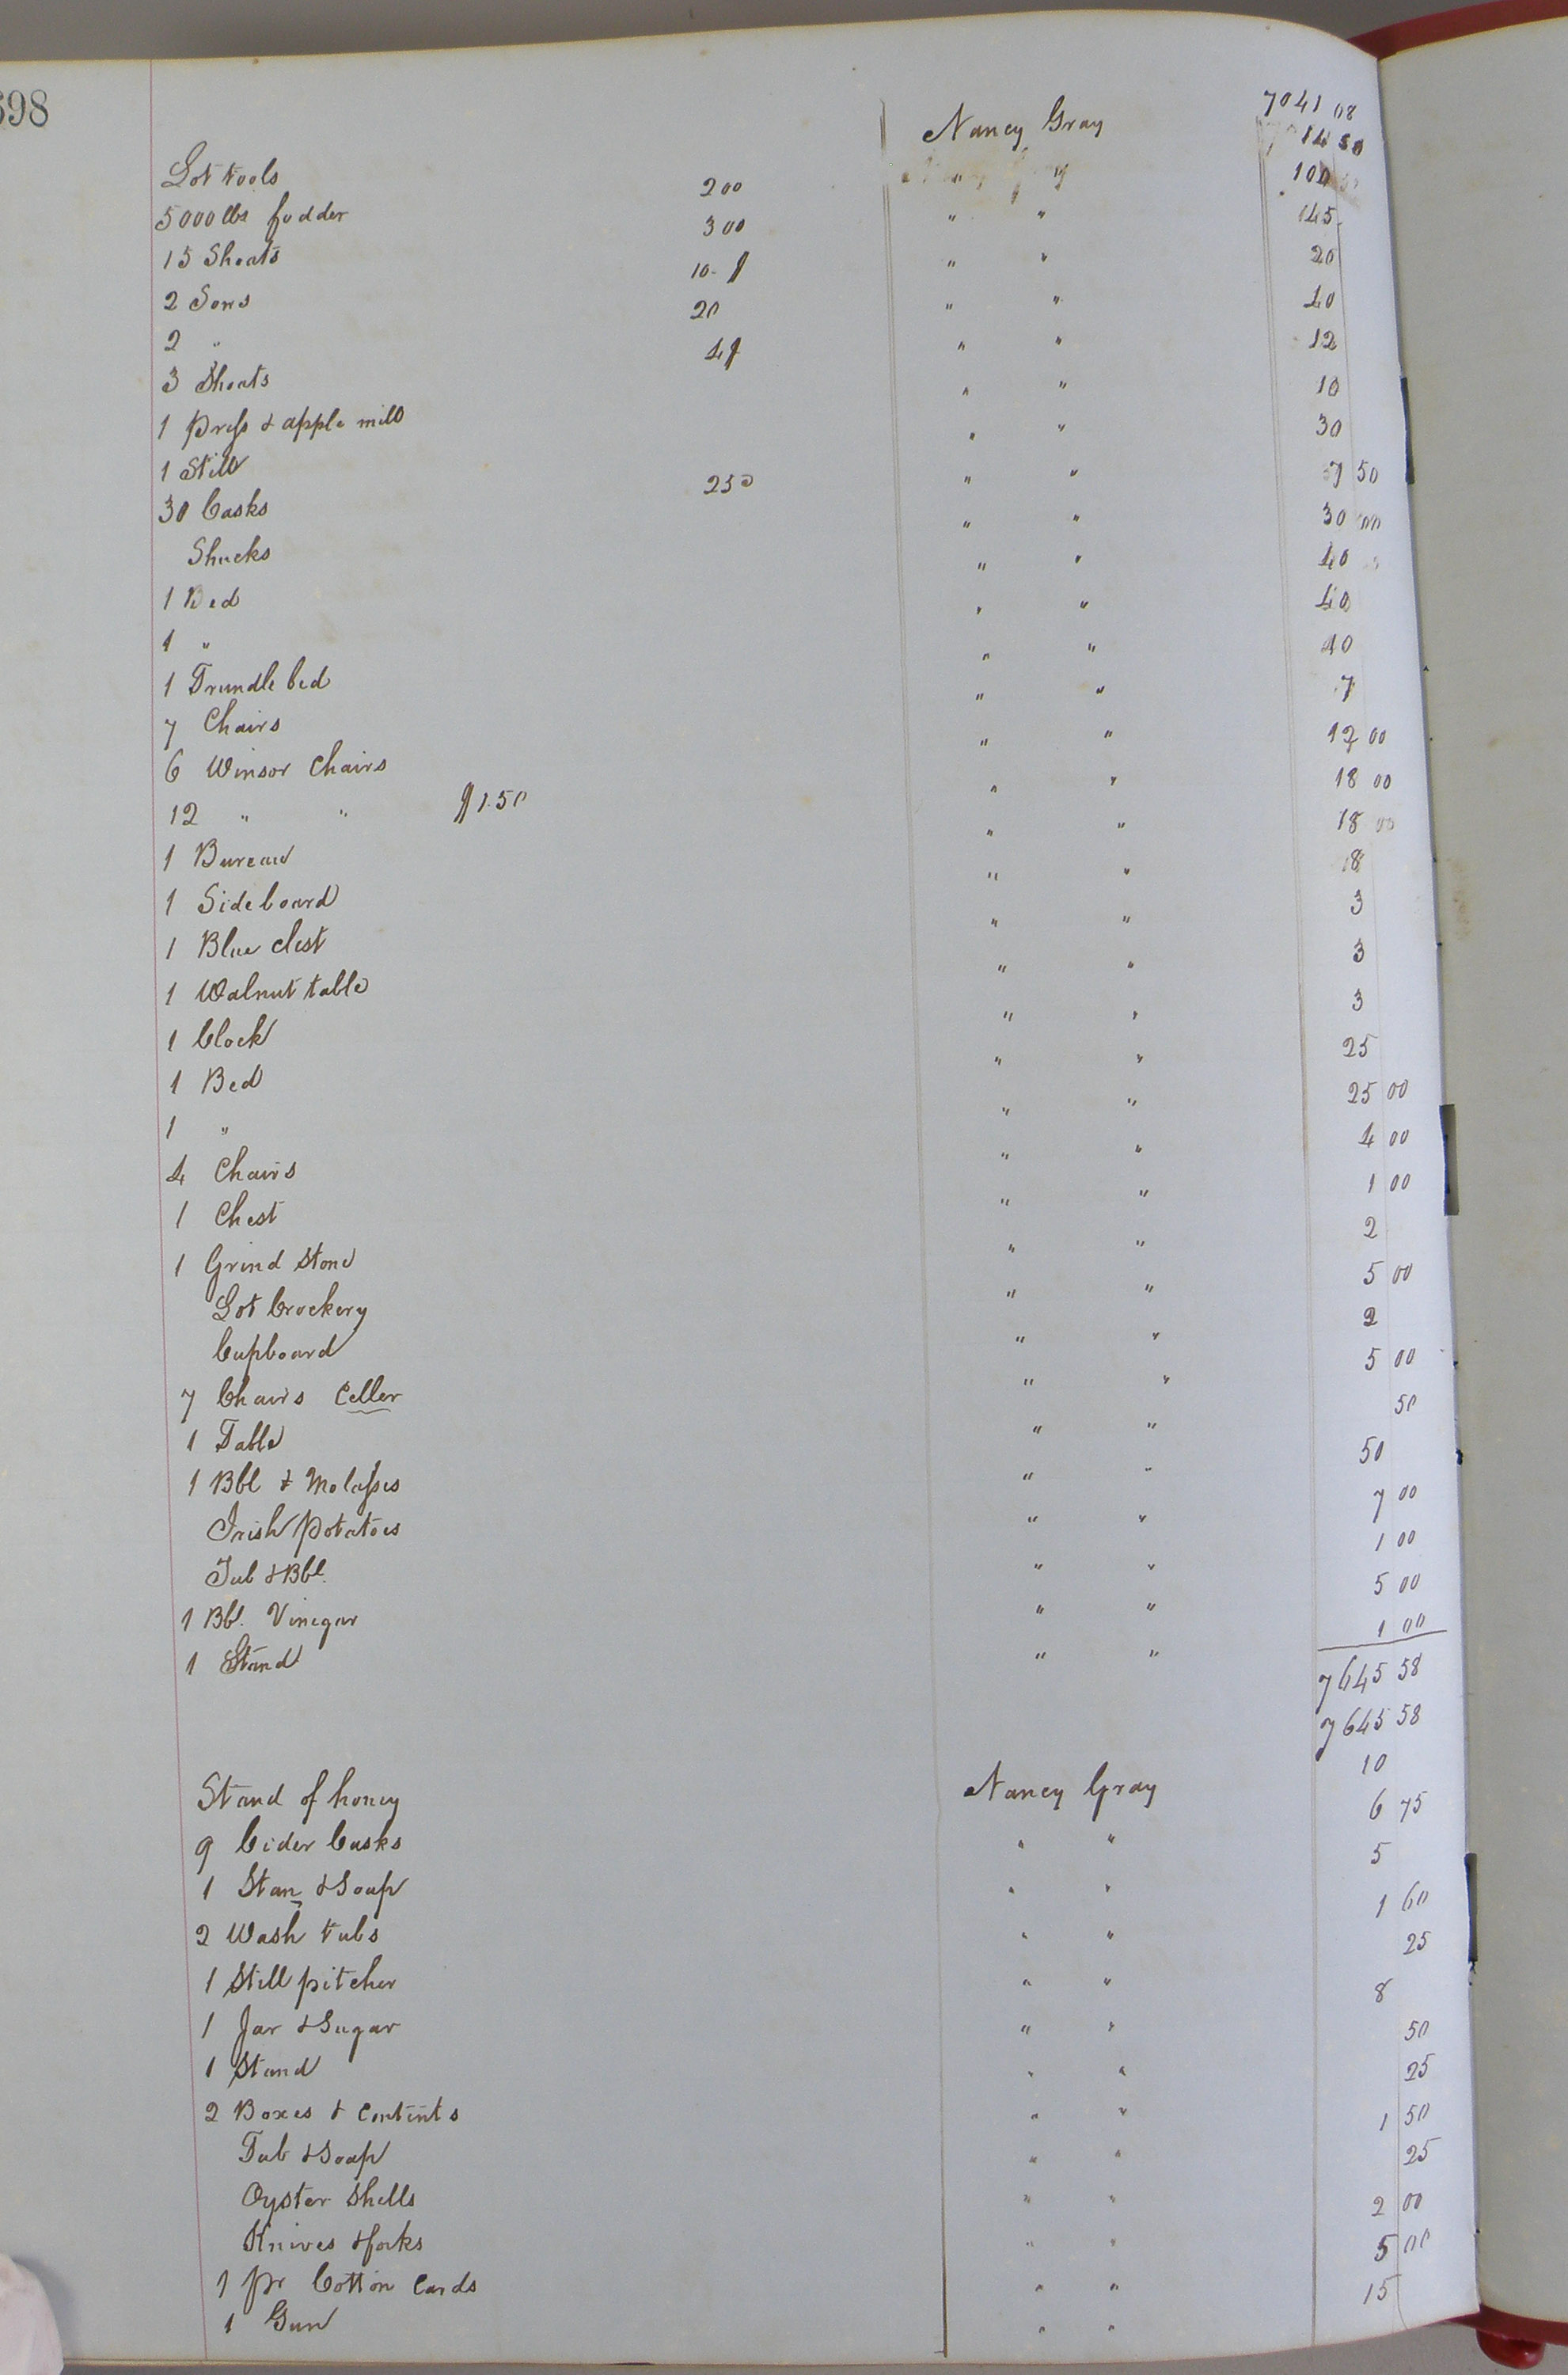 698
7041 08
Lot tools Nancy Gray 14 50
5000 lbs fodder 200 " " 100
15 Shoats 300 " " 45
2 Sows 10 " " 20
2 " 20 " " 40
3 Shoats 4 " " 12
1 Press & apple mill " " 10
1 Still " " 30
30 Casks 25 " " 7 50
Shucks " " 30 00
1 Bed " " 40
1 " " " 40
1 Trundle bed " " 40
7 Chairs " " 7
6 Winsor Chairs " " 12 00
12 " " $1.50 " " 18 00
1 Bureau " " 18 00
1 Sideboard " " 8
1 Blue chest " " 3
1 Walnut table " " 3
1 Clock " " 3
1 Bed " " 25
1 " " " 25 00
4 Chairs " " 4 00
1 Chest " " 1 00
1 Grind Stone " " 2
Lot Crockery " " 5 00
Cupboard " " 2
7 Chairs Celler " " 5 00
1 Table " " 50
1 Bbl & Molasses " " 50
Irish Potatoes " " 7 00
Tub & Bbl. " " 1 00
1 Bbl. Vinegar " " 5 00
1 Stand " " 1 00
7645 58
7645 58
Stand of honey Nancy Gray 10
9 Cider Casks " " 6 75
1 Stan & Soap " " 5
2 Wash tubs " " 1 60
1 Still pitcher " " 25
1 Jar & Sugar " " 8
1 Stand " " 50
2 Boxes & Contents " " 25
Tub & Soap " " 1 50
Oyster Shells " " 25
Knives & forks " " 2 00
1 pr Cotton Cards " " 5 00
1 Gun " " 15